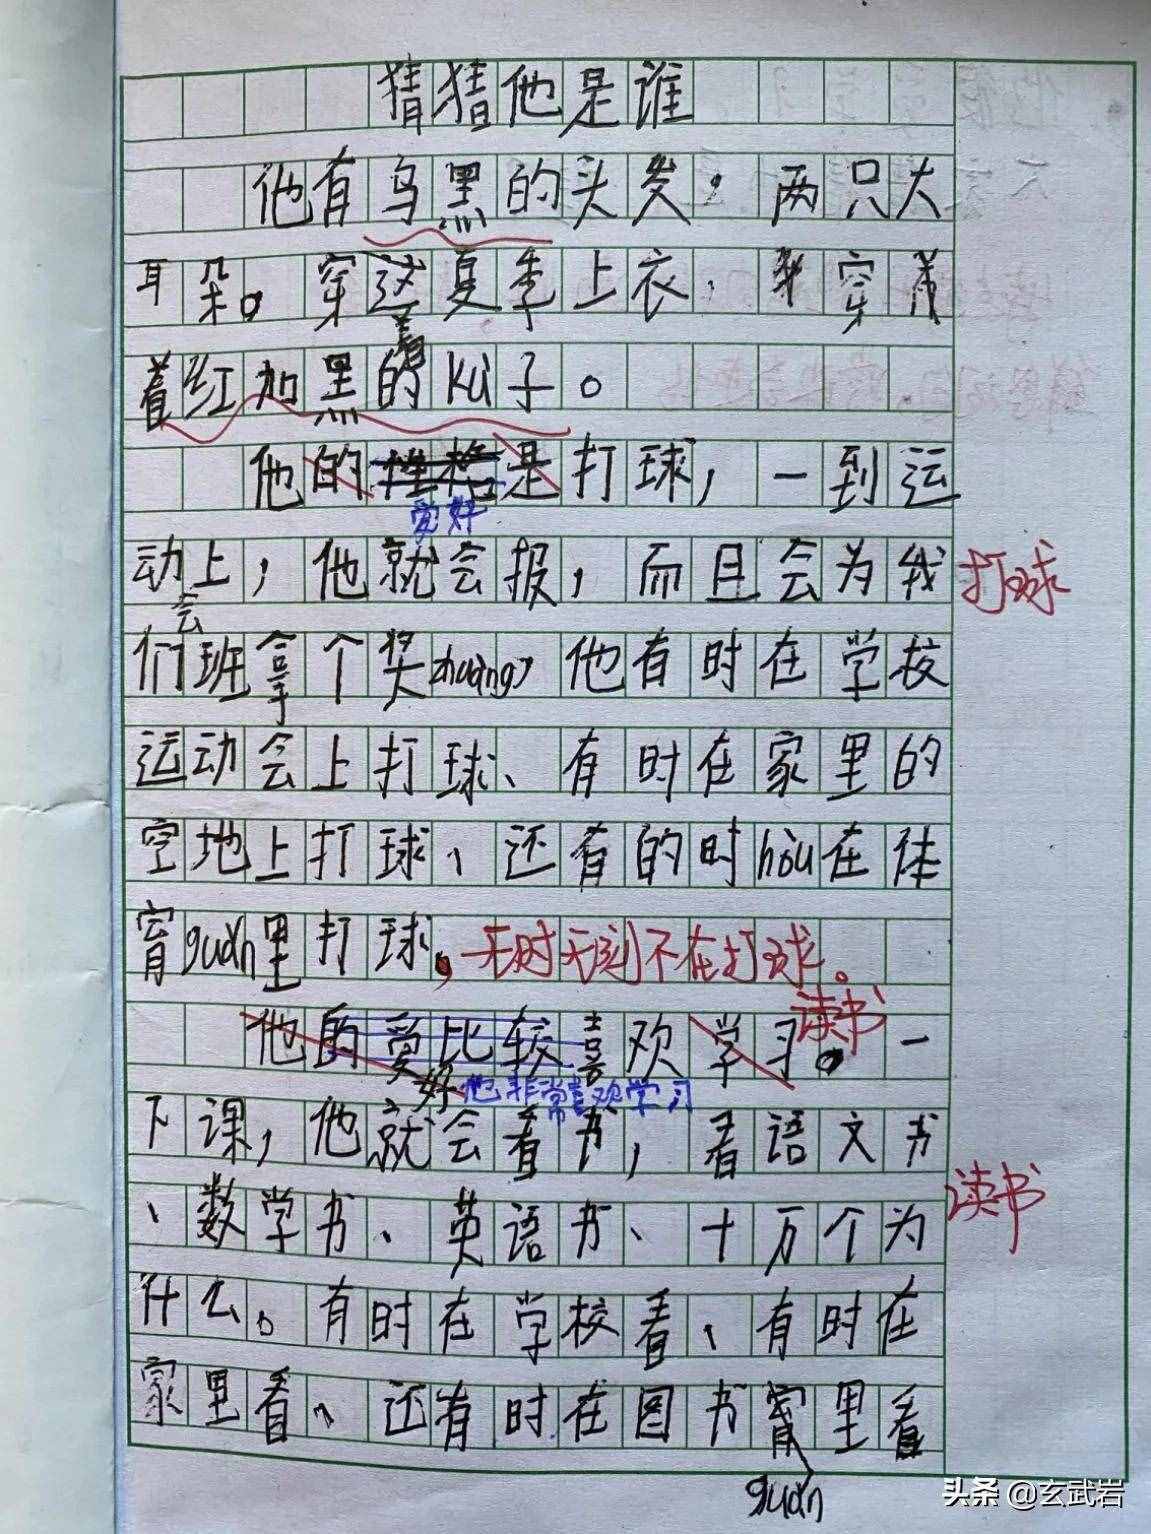 猜猜他是谁
他有乌黑的头发，两只大
耳朵。穿这夏季上衣、穿着
着
着红加黑的kù子。
他的性格是打球，一到运
爱好
动上，他就会报，而且会为我
打球
会
们班拿个奖zhuàng，他有时在学校
运动会上打球、有时在家里的
空地上打球、还有的时hòu在体
育guǎn里打球，无时无刻不在打球。
读书
他的爱比较喜欢学习。一
好 他非常喜欢学习
下课，他就会看书，看语文书
、数学书、英语书、十万个为
读书
什么。有时在学校看、有时在
家里看、还有时在图书里看
guǎn
头条 @玄武岩